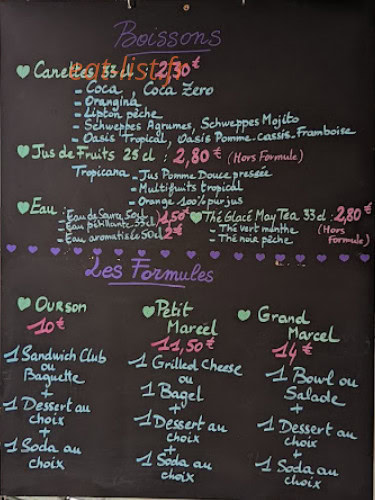 Boissons
eat-list.fr
Canettes 33 cl 2,30€
- Coca, Coca Zero
- Orangina
- Lipton pêche
- Schweppes Agrumes, Schweppes Mojito
- Oasis Tropical, Oasis Pomme. Cassis. Framboise
Jus de Fruits 25 cl : 2,80€ (Hors Formule)
Tropicana - Jus Pomme Douce pressée
- Multifruits tropical
- Orange 100% pur jus
Eau : - Eau de Source 50cl 1,50€
- Eau pétillante 33cl
- Eau aromatisée 50cl 2€
Thé Glacé May Tea 33 cl : 2,80€
- Thé vert menthe (Hors Formule)
- Thé noir pêche
Les Formules
Ourson
10€
1 Sandwich Club
ou
Baguette
+
1 Dessert au
choix
+
1 Soda au
choix
Petit
Marcel
11,50€
1 Grilled Cheese
ou
1 Bagel
+
1 Dessert au
choix
+
1 Soda au
choix
Grand
Marcel
14€
1 Bowl ou
Salade
+
1 Dessert au
choix
+
1 Soda au
choix